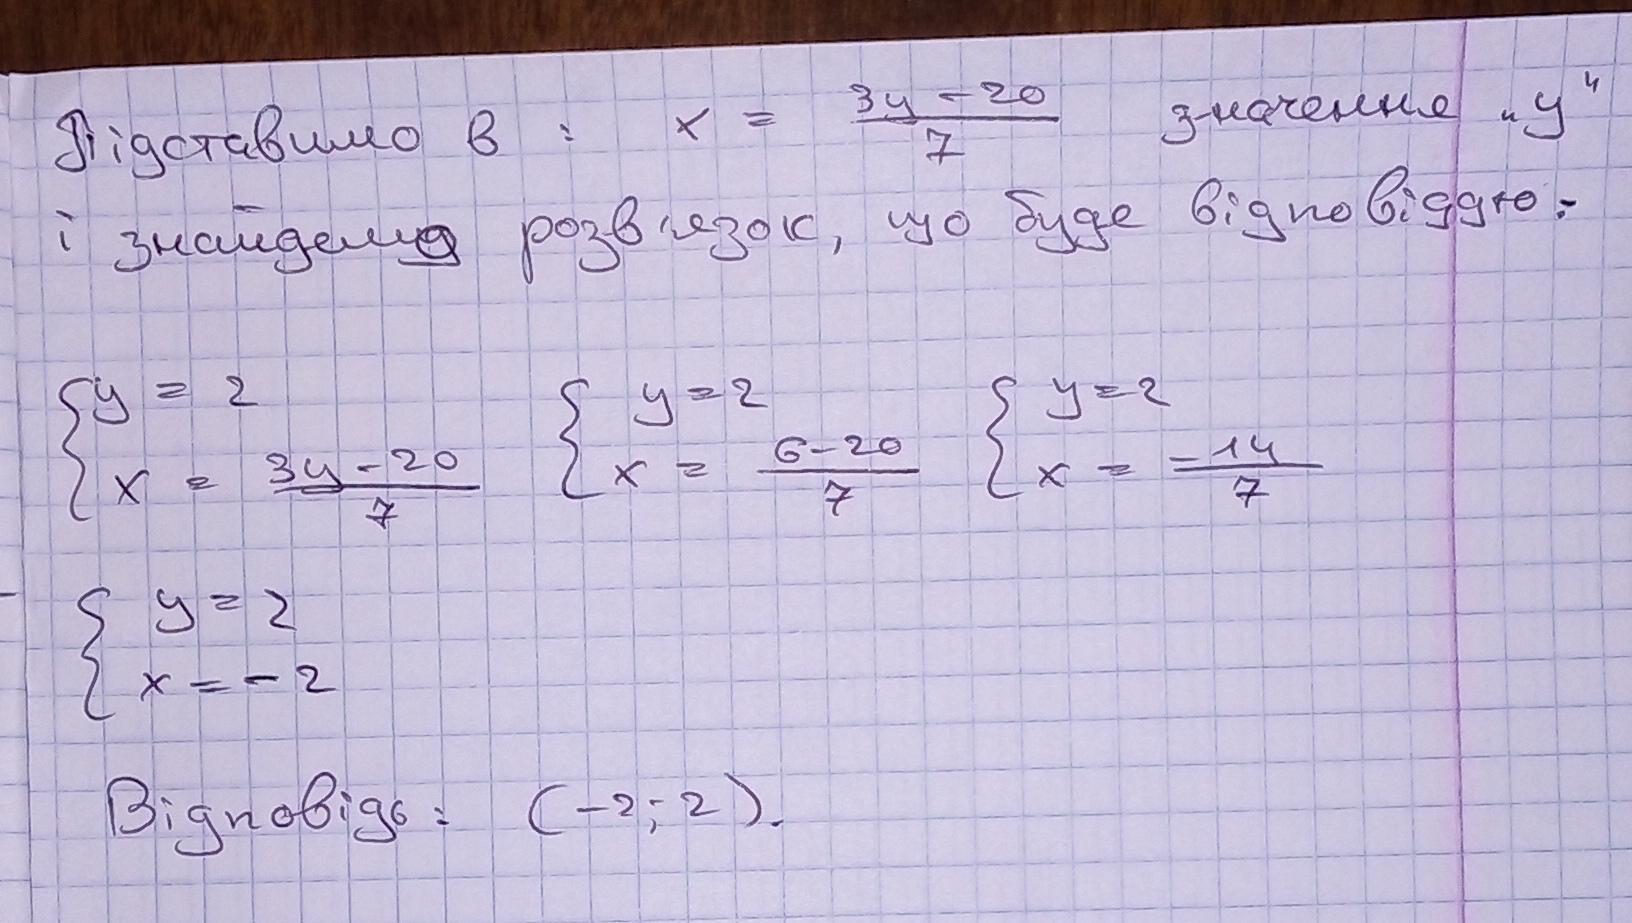 Підставимо в : x = (3y - 20)/7 значення „y“
і знайдемо розв'язок, що буде відповіддю:
{ y = 2 { y = 2 { y = 2
{ x = (3y - 20)/7 { x = (6 - 20)/7 { x = -14/7
{ y = 2
{ x = - 2
Відповідь: (-2; 2).